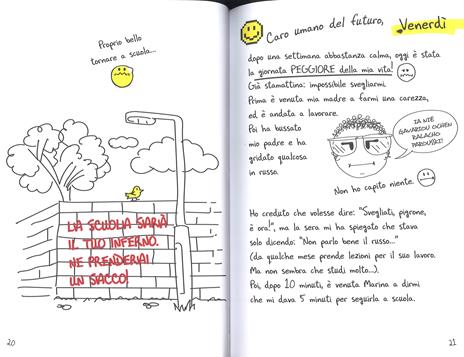 Proprio bello
tornare a scuola...
LA SCUOLA SARÀ
IL TUO INFERNO.
NE PRENDERAI
UN SACCO!
20
Caro umano del futuro,
Venerdì
dopo una settimana abbastanza calma, oggi è stata
la giornata PEGGIORE della mia vita!
Già stamattina: impossibile svegliarmi.
Prima è venuta mia madre a farmi una carezza,
ed è andata a lavorare.
Poi ha bussato
mio padre e ha
gridato qualcosa
in russo.
IA NIE
GAVARIOU OCHEN
BALACHO
PAROUSKI!
Non ho capito niente.
Ho creduto che volesse dire: "Svegliati, pigrone,
è ora!", ma la sera mi ha spiegato che stava
solo dicendo: "Non parlo bene il russo..."
(da qualche mese prende lezioni per il suo lavoro.
Ma non sembra che studi molto...).
Poi, dopo 10 minuti, è venuta Marina a dirmi
che mi dava 5 minuti per seguirla a scuola.
21